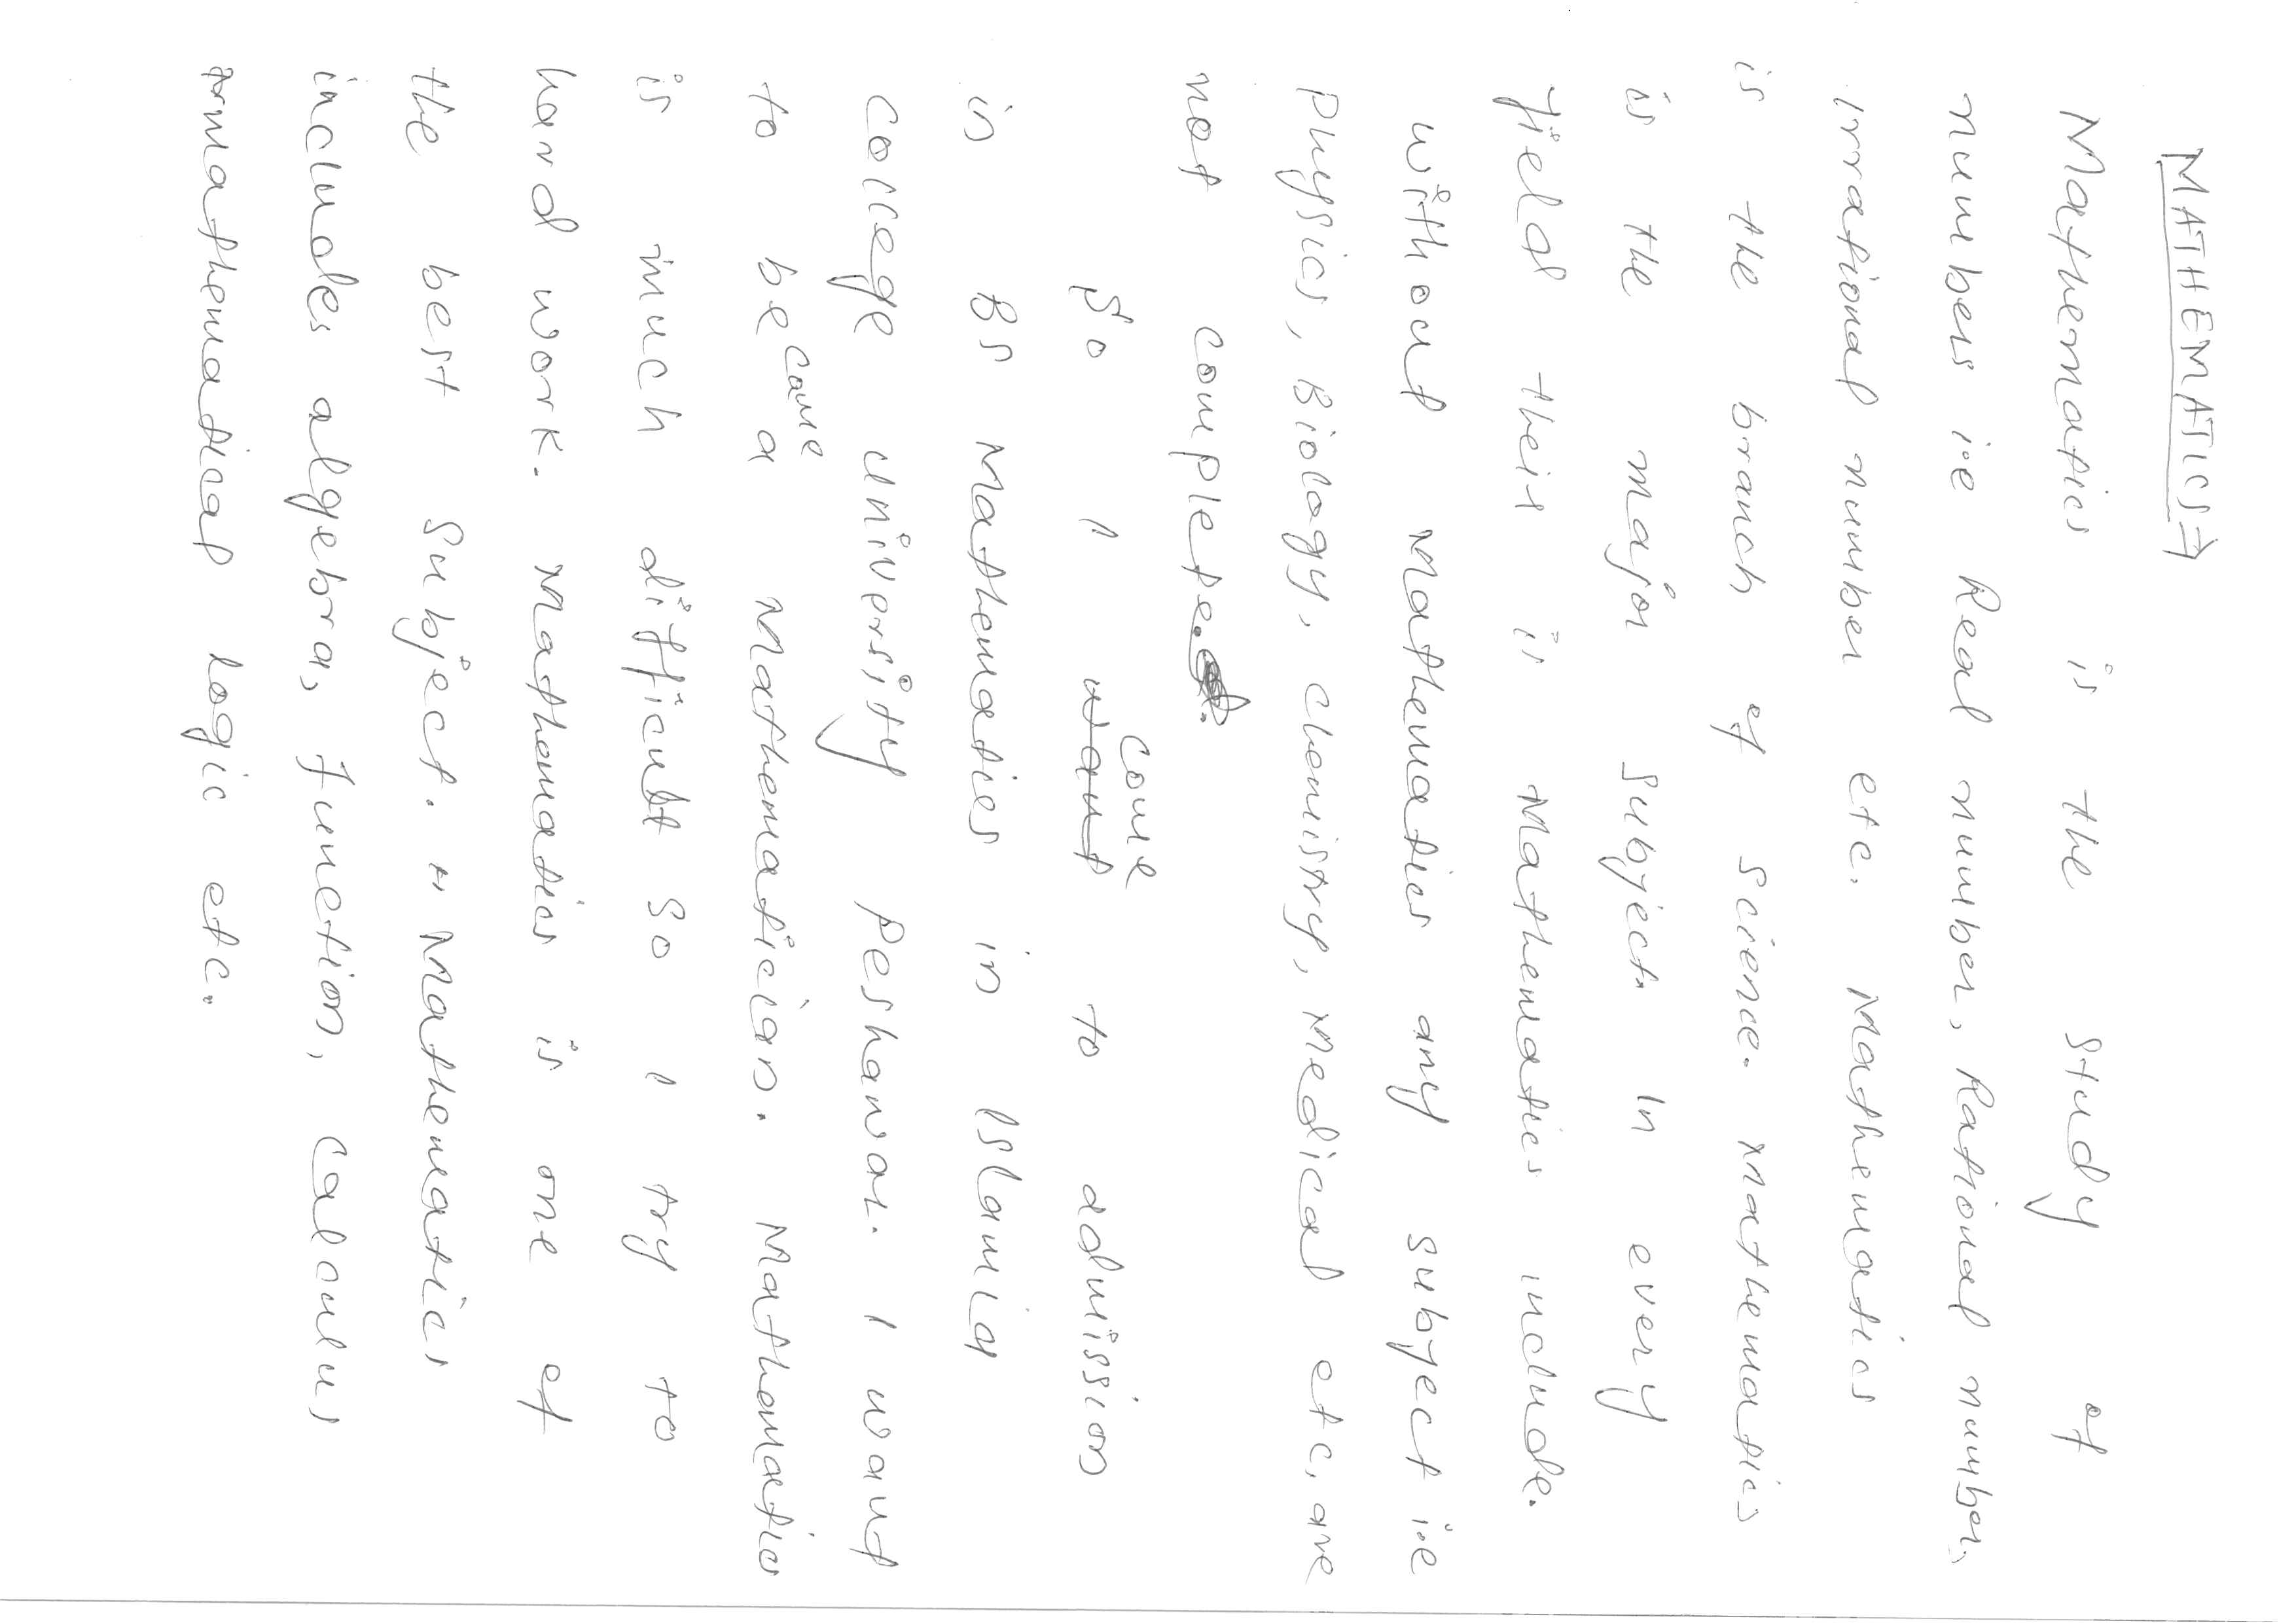 MATHEMATICS⇒
Mathematics is the study of
numbers i.e Real number, Rational number,
irrational number etc. Mathematics
is the branch of science. Mathematics
is the major subject. In every
field their is Mathematics include.
without Mathematics any subject i.e
Physics, Biology, Chemistry, Medical etc, are
not complete.
come
So I want to admission
in BS Mathematics in Islamia
college university Peshawar. I want
to became a Mathematician. Mathematics
is much difficult so I try to
hard work. Mathematics is one of
the best subject. Mathematics
includes algebra, function, calculus
mathematical logic etc.